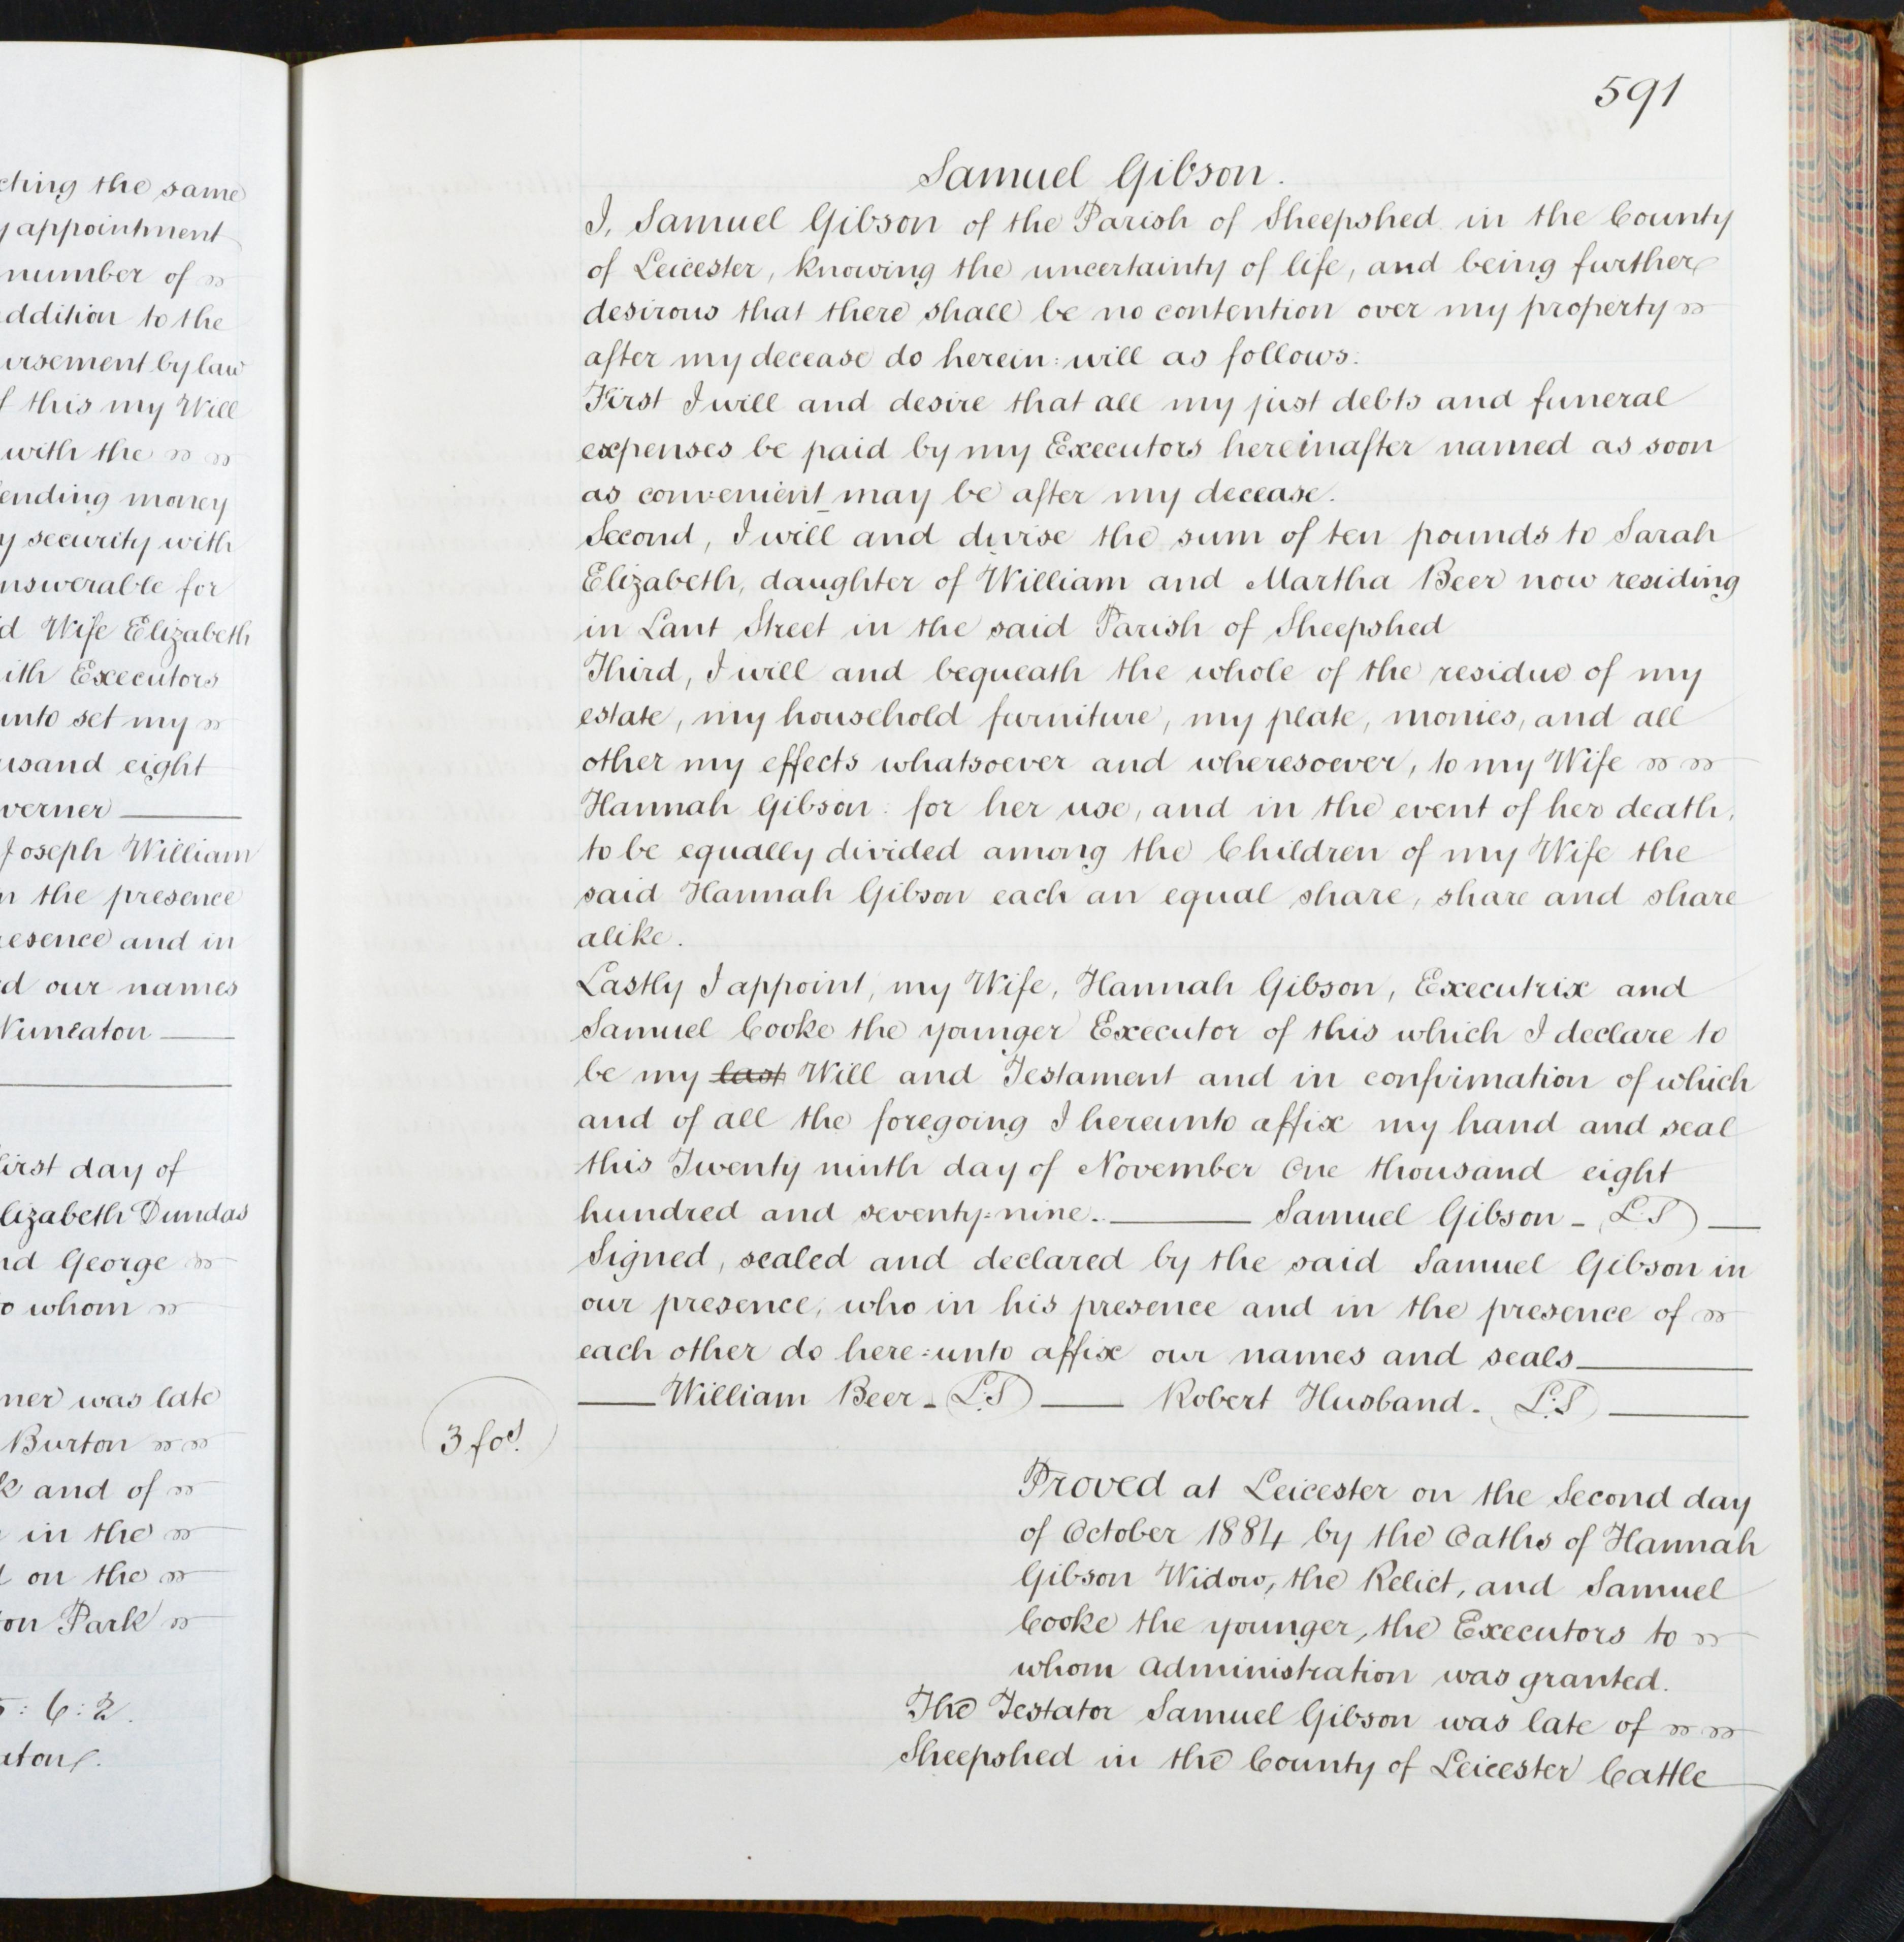 cting the same
y appointment
number of
ddition to the
ursement by law
f this my Will
with the
ending money
y security with
nswerable for
d Wife Elizabeth
ith Executors
unto set my
usand eight
verner
Joseph William
n the presence
resence and in
d our names
Nuneaton
irst day of
lizabeth Dundas
nd George
o whom
ner was late
Burton
k and of
in the
on the
ton Park
: 6 : 2.
aton.
591
Samuel Gibson.
I, Samuel Gibson of the Parish of Sheepshed in the County
of Leicester, knowing the uncertainty of life, and being further
desirous that there shall be no contention over my property
after my decease do herein: will as follows:
First I will and desire that all my just debts and funeral
expenses be paid by my Executors hereinafter named as soon
as convenient may be after my decease.
Second, I will and divise the sum of ten pounds to Sarah
Elizabeth, daughter of William and Martha Beer now residing
in Lant Street in the said Parish of Sheepshed
Third, I will and bequeath the whole of the residue of my
estate, my household furniture, my plate, monies, and all
other my effects whatsoever and wheresoever, to my Wife
Hannah Gibson: for her use, and in the event of her death,
to be equally divided among the Children of my Wife the
said Hannah Gibson each an equal share, share and share
alike.
Lastly I appoint, my Wife, Hannah Gibson, Executrix and
Samuel Cooke the younger Executor of this which I declare to
be my last Will and Testament and in confirmation of which
and of all the foregoing I hereunto affix my hand and seal
this Twenty ninth day of November One thousand eight
hundred and seventy=nine. Samuel Gibson - L.S
Signed, sealed and declared by the said Samuel Gibson in
our presence, who in his presence and in the presence of
each other do here=unto affix our names and seals
William Beer - L.S Robert Husband - L.S
3 fos.
Proved at Leicester on the Second day
of October 1884 by the Oaths of Hannah
Gibson Widow, the Relict, and Samuel
Cooke the younger, the Executors to
whom administration was granted.
The Testator Samuel Gibson was late of
Sheepshed in the County of Leicester Cattle